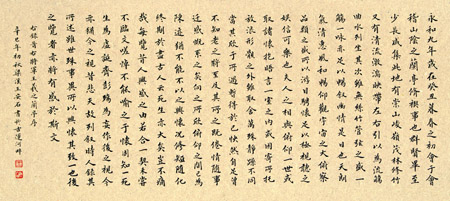 永和九年歲在癸丑暮春之初會于會
稽山陰之蘭亭脩稧事也群賢畢至
少長咸集此地有崇山峻領茂林脩竹
又有清流激湍映帶左右引以為流觴
曲水列坐其次雖無絲竹管弦之盛一
觴一詠亦足以暢敘幽情是日也天朗
氣清惠風和暢仰觀宇宙之大俯察
品類之盛所以遊目騁懷足以極視聽之
娛信可樂也夫人之相與俯仰一世或
取諸懷抱悟言一室之內或因寄所託
放浪形骸之外雖取舍萬殊靜躁不同
當其欣于所遇暫得于己快然自足曾
不知老之將至及其所之既倦情隨事
遷感慨係之矣向之所欣俛仰之間已為
陳迹猶不能不以之興懷況脩短隨化
終期於盡古人云死生亦大矣豈不痛
哉每覽昔人興感之由若合一契未嘗
不臨文嗟悼不能喻之于懷固知一死
生為虛誕齊彭殤為妄作後之視今
亦猶今之視昔悲夫故列敘時人錄其
所述雖世殊事異所以興懷其致一也後
之覽者亦將有感於斯文
右錄晉右將軍王羲之蘭亭序
辛巳年初秋梁溪王安石書於古運河畔